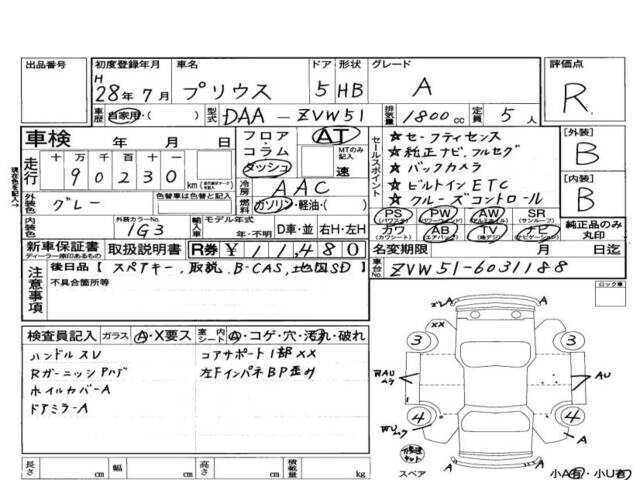 出品番号
初度登録年月
H
28年7月
車名
プリウス
ドア
5
形状
HB
グレード
A
評価点
R
車歴 自家用・( )
型式 DAA-ZVW51
排気量 1800cc
定員 5人
車検 年 月 日
走行 十万千百十一
90230 km
外装色 グレー
色替車は色替と記入
フロア
コラム
ダッシュ
AT
MTのみ記入
速
冷房 AAC
燃料 ガソリン・軽油・( )
セールスポイント
★セーフティセンス
★純正ナビ,フルセグ
★バックカメラ
★ビルトインETC
★クルーズコントロール
[外装]
B
[内装]
B
内装色
外装カラーNo.
1G3
輸入車
モデル年式
年・不明
D車・並
右H・左H
PS (パワステ)
PW
AW (アルミホイル)
SR (サンルーフ)
カワ (カワシート)
AB (エアバッグ)
TV
ナビ (ナビゲーション)
純正品のみ丸印
新車保証書
ディーラー捺印あるもの
取扱説明書
R券 ¥11,480
名変期限 月 日迄
注意事項
後日品【スペアキー,取説,B-CAS,地図SD】
不具合箇所等
車台No. ZVW51-6031188
ロック車
現在色を記入
検査員記入
ガラス A・X要ス
室内シート A・コゲ・穴・汚れ・破れ
ハンドルスレ
コアサポート1部XX
左FインパネBP歪み
ホイルカバーA
ドアミラーA
ズレA
A
XX
3
3
AU
4
4
A
A
スペア
小A有・小U有
長さ cm
幅 cm
高さ cm
積載量 kg